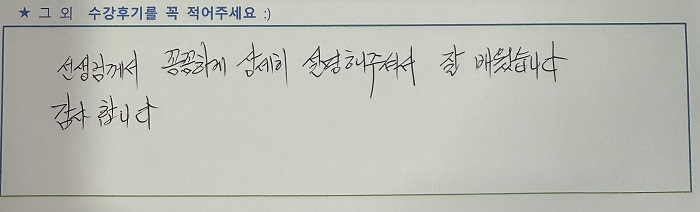 ★ 그 외 수강후기를 꼭 적어주세요 :)
선생님께서 꼼꼼하게 상세히 설명해주셔서 잘 배웠습니다
감사합니다